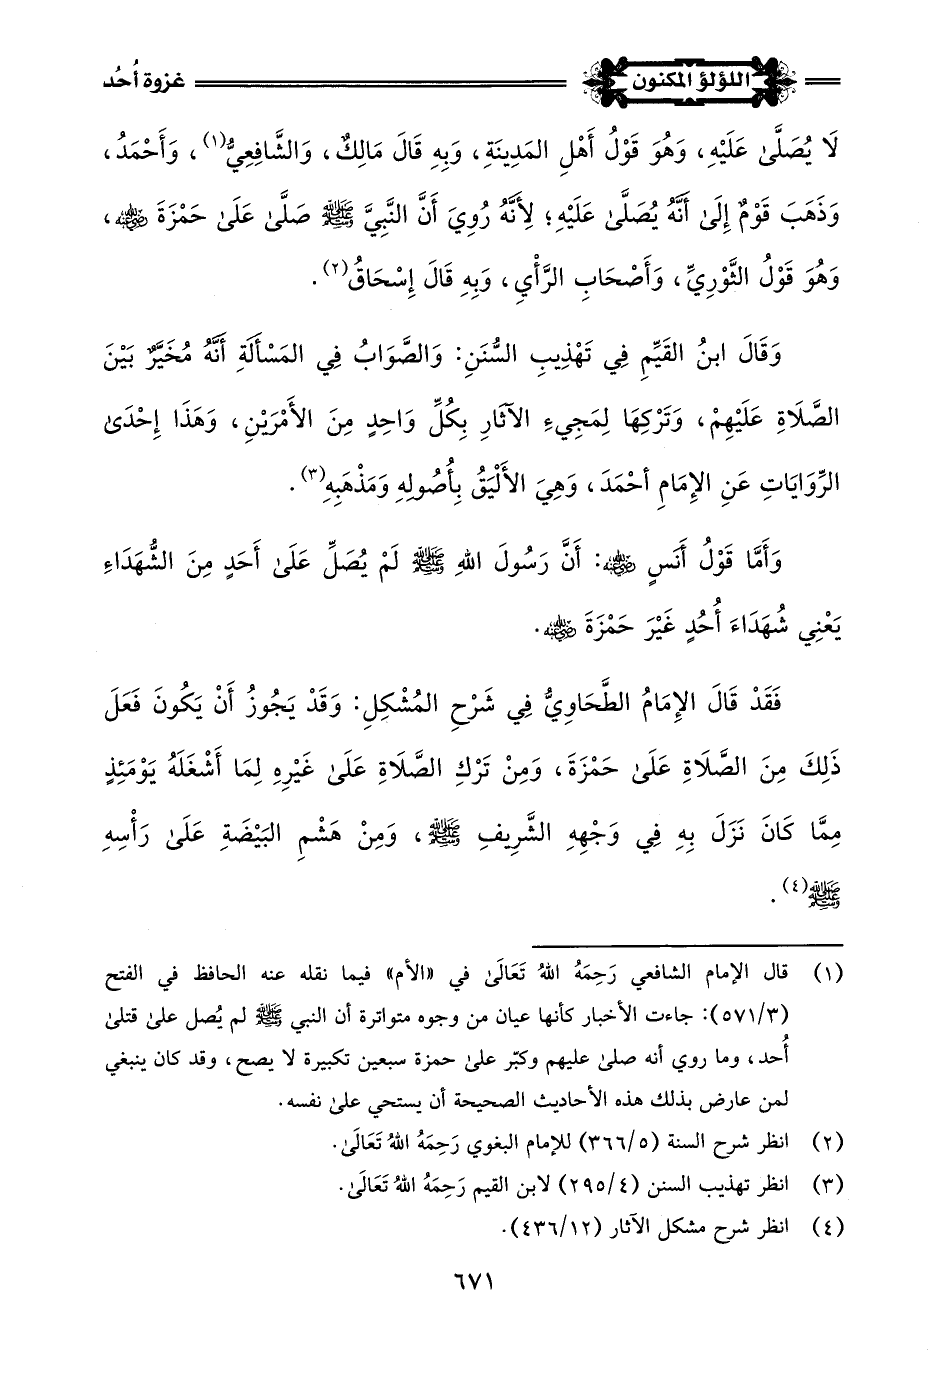 اللؤلؤ المكنون غزوة أُحُد
لَا يُصَلَّىٰ عَلَيْهِ، وَهُوَ قَوْلُ أَهْلِ المَدِينَةِ، وَبِهِ قَالَ مَالِكٌ، وَالشَّافِعِيُّ(١)، وَأَحْمَدُ،
وَذَهَبَ قَوْمٌ إِلَىٰ أَنَّهُ يُصَلَّىٰ عَلَيْهِ؛ لِأَنَّهُ رُوِيَ أَنَّ النَّبِيَّ ﷺ صَلَّىٰ عَلَىٰ حَمْزَةَ رضي الله عنه،
وَهُوَ قَوْلُ الثَّوْرِيِّ، وَأَصْحَابِ الرَّأْيِ، وَبِهِ قَالَ إِسْحَاقُ(٢).
وَقَالَ ابنُ القَيِّمِ فِي تَهْذِيبِ السُّنَنِ: وَالصَّوَابُ فِي المَسْأَلَةِ أَنَّهُ مُخَيَّرٌ بَيْنَ
الصَّلَاةِ عَلَيْهِمْ، وَتَرْكِهَا لِمَجِيءِ الآثَارِ بِكُلِّ وَاحِدٍ مِنَ الأَمْرَيْنِ، وَهَذَا إِحْدَىٰ
الرِّوَايَاتِ عَنِ الإِمَامِ أحْمَدَ، وَهِيَ الأَلْيَقُ بِأُصُولِهِ وَمَذْهَبِهِ(٣).
وَأَمَّا قَوْلُ أَنَسٍ رضي الله عنه: أَنَّ رَسُولَ اللهِ ﷺ لَمْ يُصَلِّ عَلَىٰ أَحَدٍ مِنَ الشُّهَدَاءِ
يَعْنِي شُهَدَاءَ أُحُدٍ غَيْرَ حَمْزَةَ رضي الله عنه.
فَقَدْ قَالَ الإِمَامُ الطَّحَاوِيُّ فِي شَرْحِ المُشْكِلِ: وَقَدْ يَجُوزُ أَنْ يَكُونَ فَعَلَ
ذَلِكَ مِنَ الصَّلَاةِ عَلَىٰ حَمْزَةَ، وَمِنْ تَرْكِ الصَّلَاةِ عَلَىٰ غَيْرِهِ لِمَا أَشْغَلَهُ يَوْمَئِذٍ
مِمَّا كَانَ نَزَلَ بِهِ فِي وَجْهِهِ الشَّرِيفِ ﷺ، وَمِنْ هَشْمِ البَيْضَةِ عَلَىٰ رَأْسِهِ
ﷺ(٤).
(١) قال الإمام الشافعي رَحِمَهُ اللهُ تَعَالَىٰ في «الأم» فيما نقله عنه الحافظ في الفتح
(٥٧١/٣): جاءت الأخبار كأنها عيان من وجوه متواترة أن النبي ﷺ لم يُصل علىٰ قتلىٰ
أُحد، وما روي أنه صلىٰ عليهم وكبّر علىٰ حمزة سبعين تكبيرة لا يصح، وقد كان ينبغي
لمن عارض بذلك هذه الأحاديث الصحيحة أن يستحي علىٰ نفسه.
(٢) انظر شرح السنة (٣٦٦/٥) للإمام البغوي رَحِمَهُ اللهُ تَعَالَىٰ.
(٣) انظر تهذيب السنن (٢٩٥/٤) لابن القيم رَحِمَهُ اللهُ تَعَالَىٰ.
(٤) انظر شرح مشكل الآثار (٤٣٦/١٢).
٦٧١